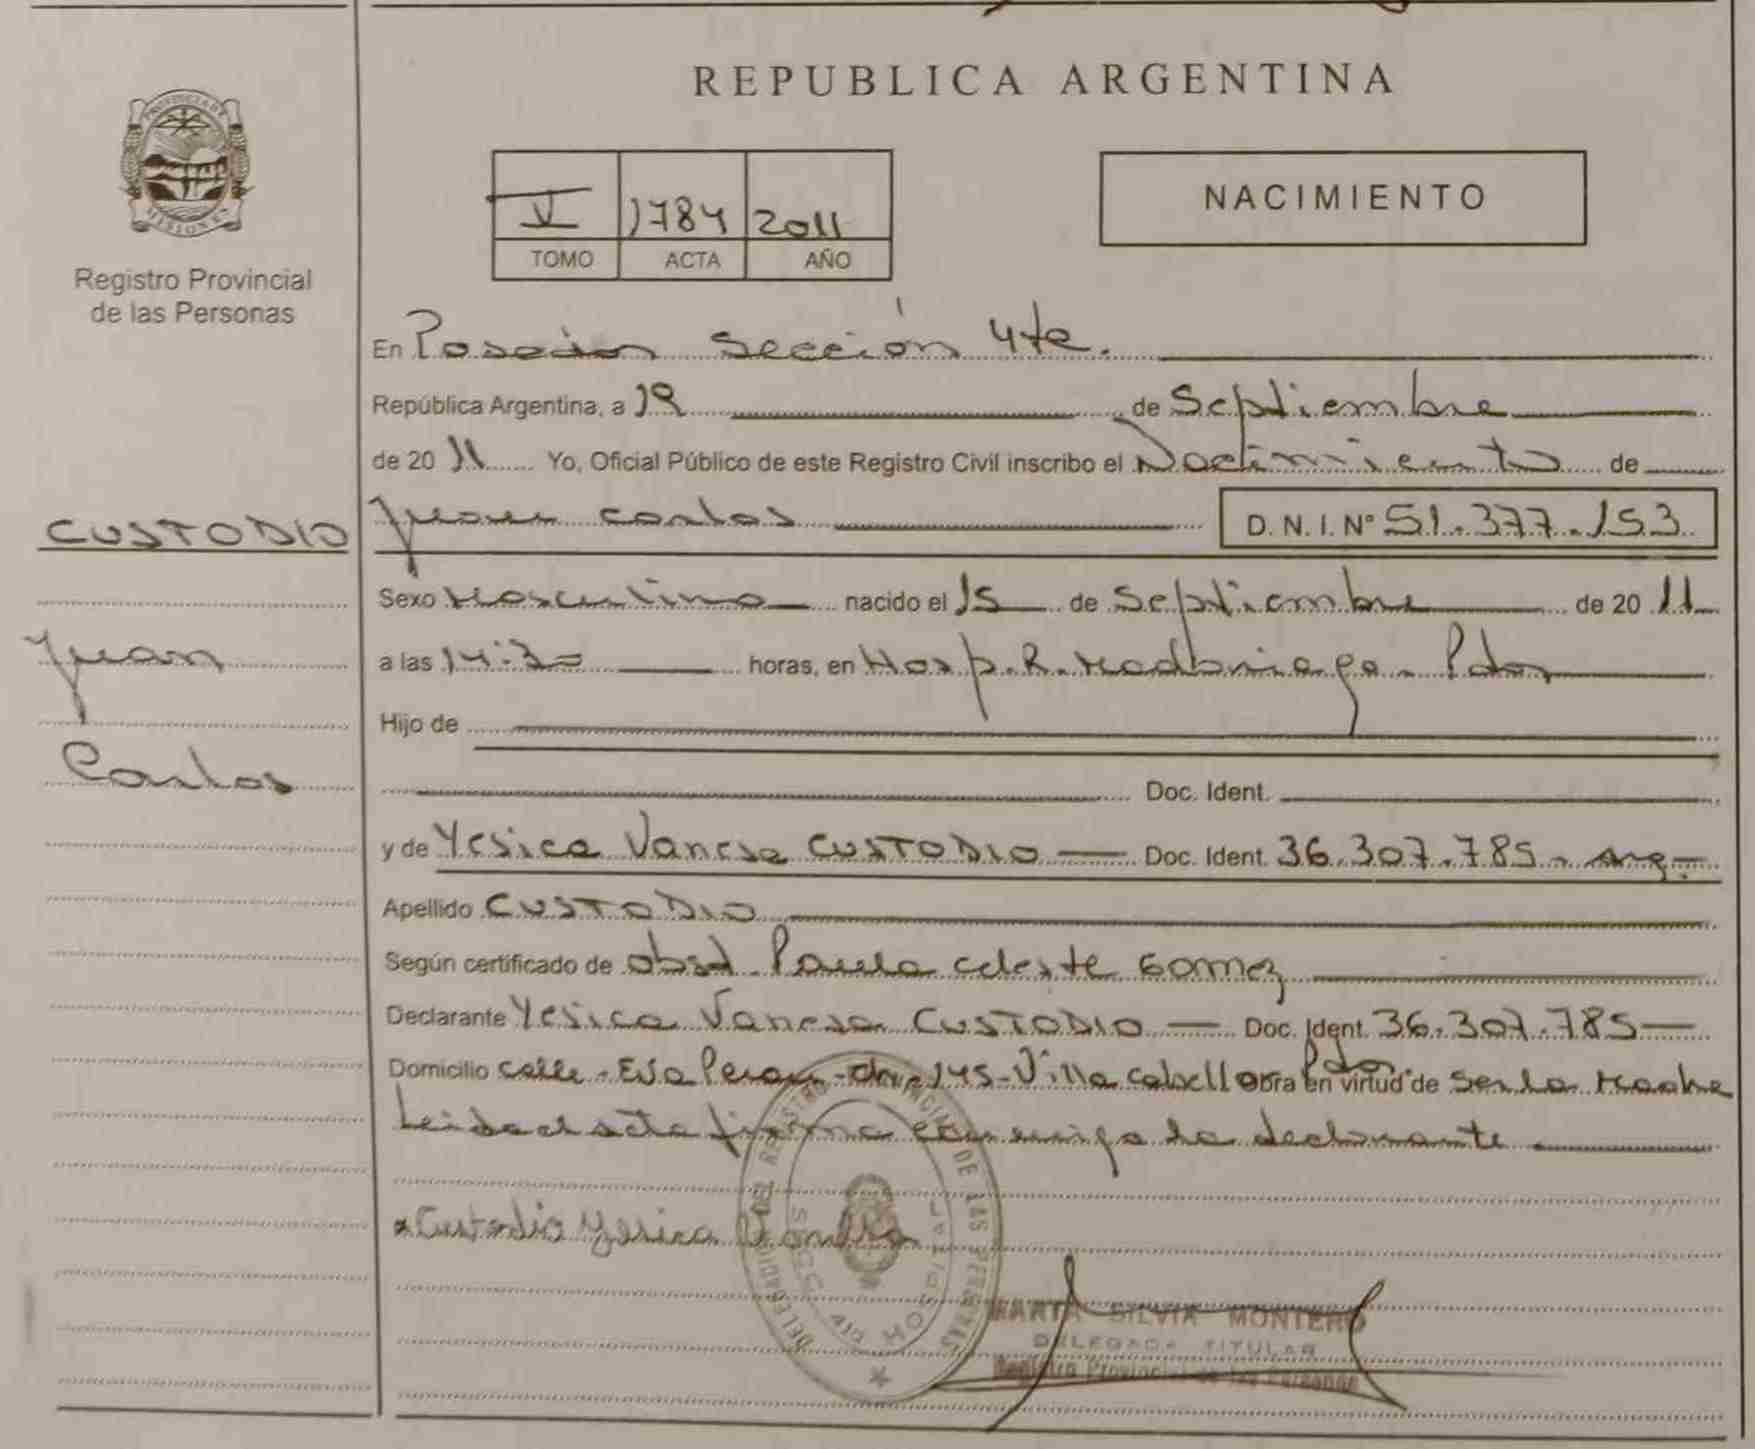 REPUBLICA ARGENTINA
PROVINCIA DE MISIONES
Registro Provincial
de las Personas
V 1784 2011
TOMO ACTA AÑO
NACIMIENTO
En Posadas Sección 4ta.
República Argentina, a 19 de Septiembre
de 20 11 Yo, Oficial Público de este Registro Civil inscribo el Nacimiento de
Juan Carlos D. N. I. Nº 51.377.153
CUSTODIO
Juan
Carlos
Sexo Masculino nacido el 15 de Septiembre de 20 11
a las 14:30 horas, en Hosp. R. Madariaga - Pdas
Hijo de
Doc. Ident.
y de Yesica Vanesa CUSTODIO — Doc. Ident. 36.307.785 - Arg -
Apellido CUSTODIO
Según certificado de obst. Paula Celeste Gomez
Declarante Yesica Vanesa CUSTODIO — Doc. Ident. 36.307.785 —
Domicilio calle - Eva Peron - 145 - Villa Cabello Pdas Obra en virtud de ser la madre
Leida el acta firma conmigo la declarante
Custodio Yesica Vanesa
DELEGACION REGISTRO PROVINCIAL DE LAS PERSONAS
SECC. 4ta
MARTA SILVIA MONTERO
DELEGADA TITULAR
Registro Provincial de las Personas